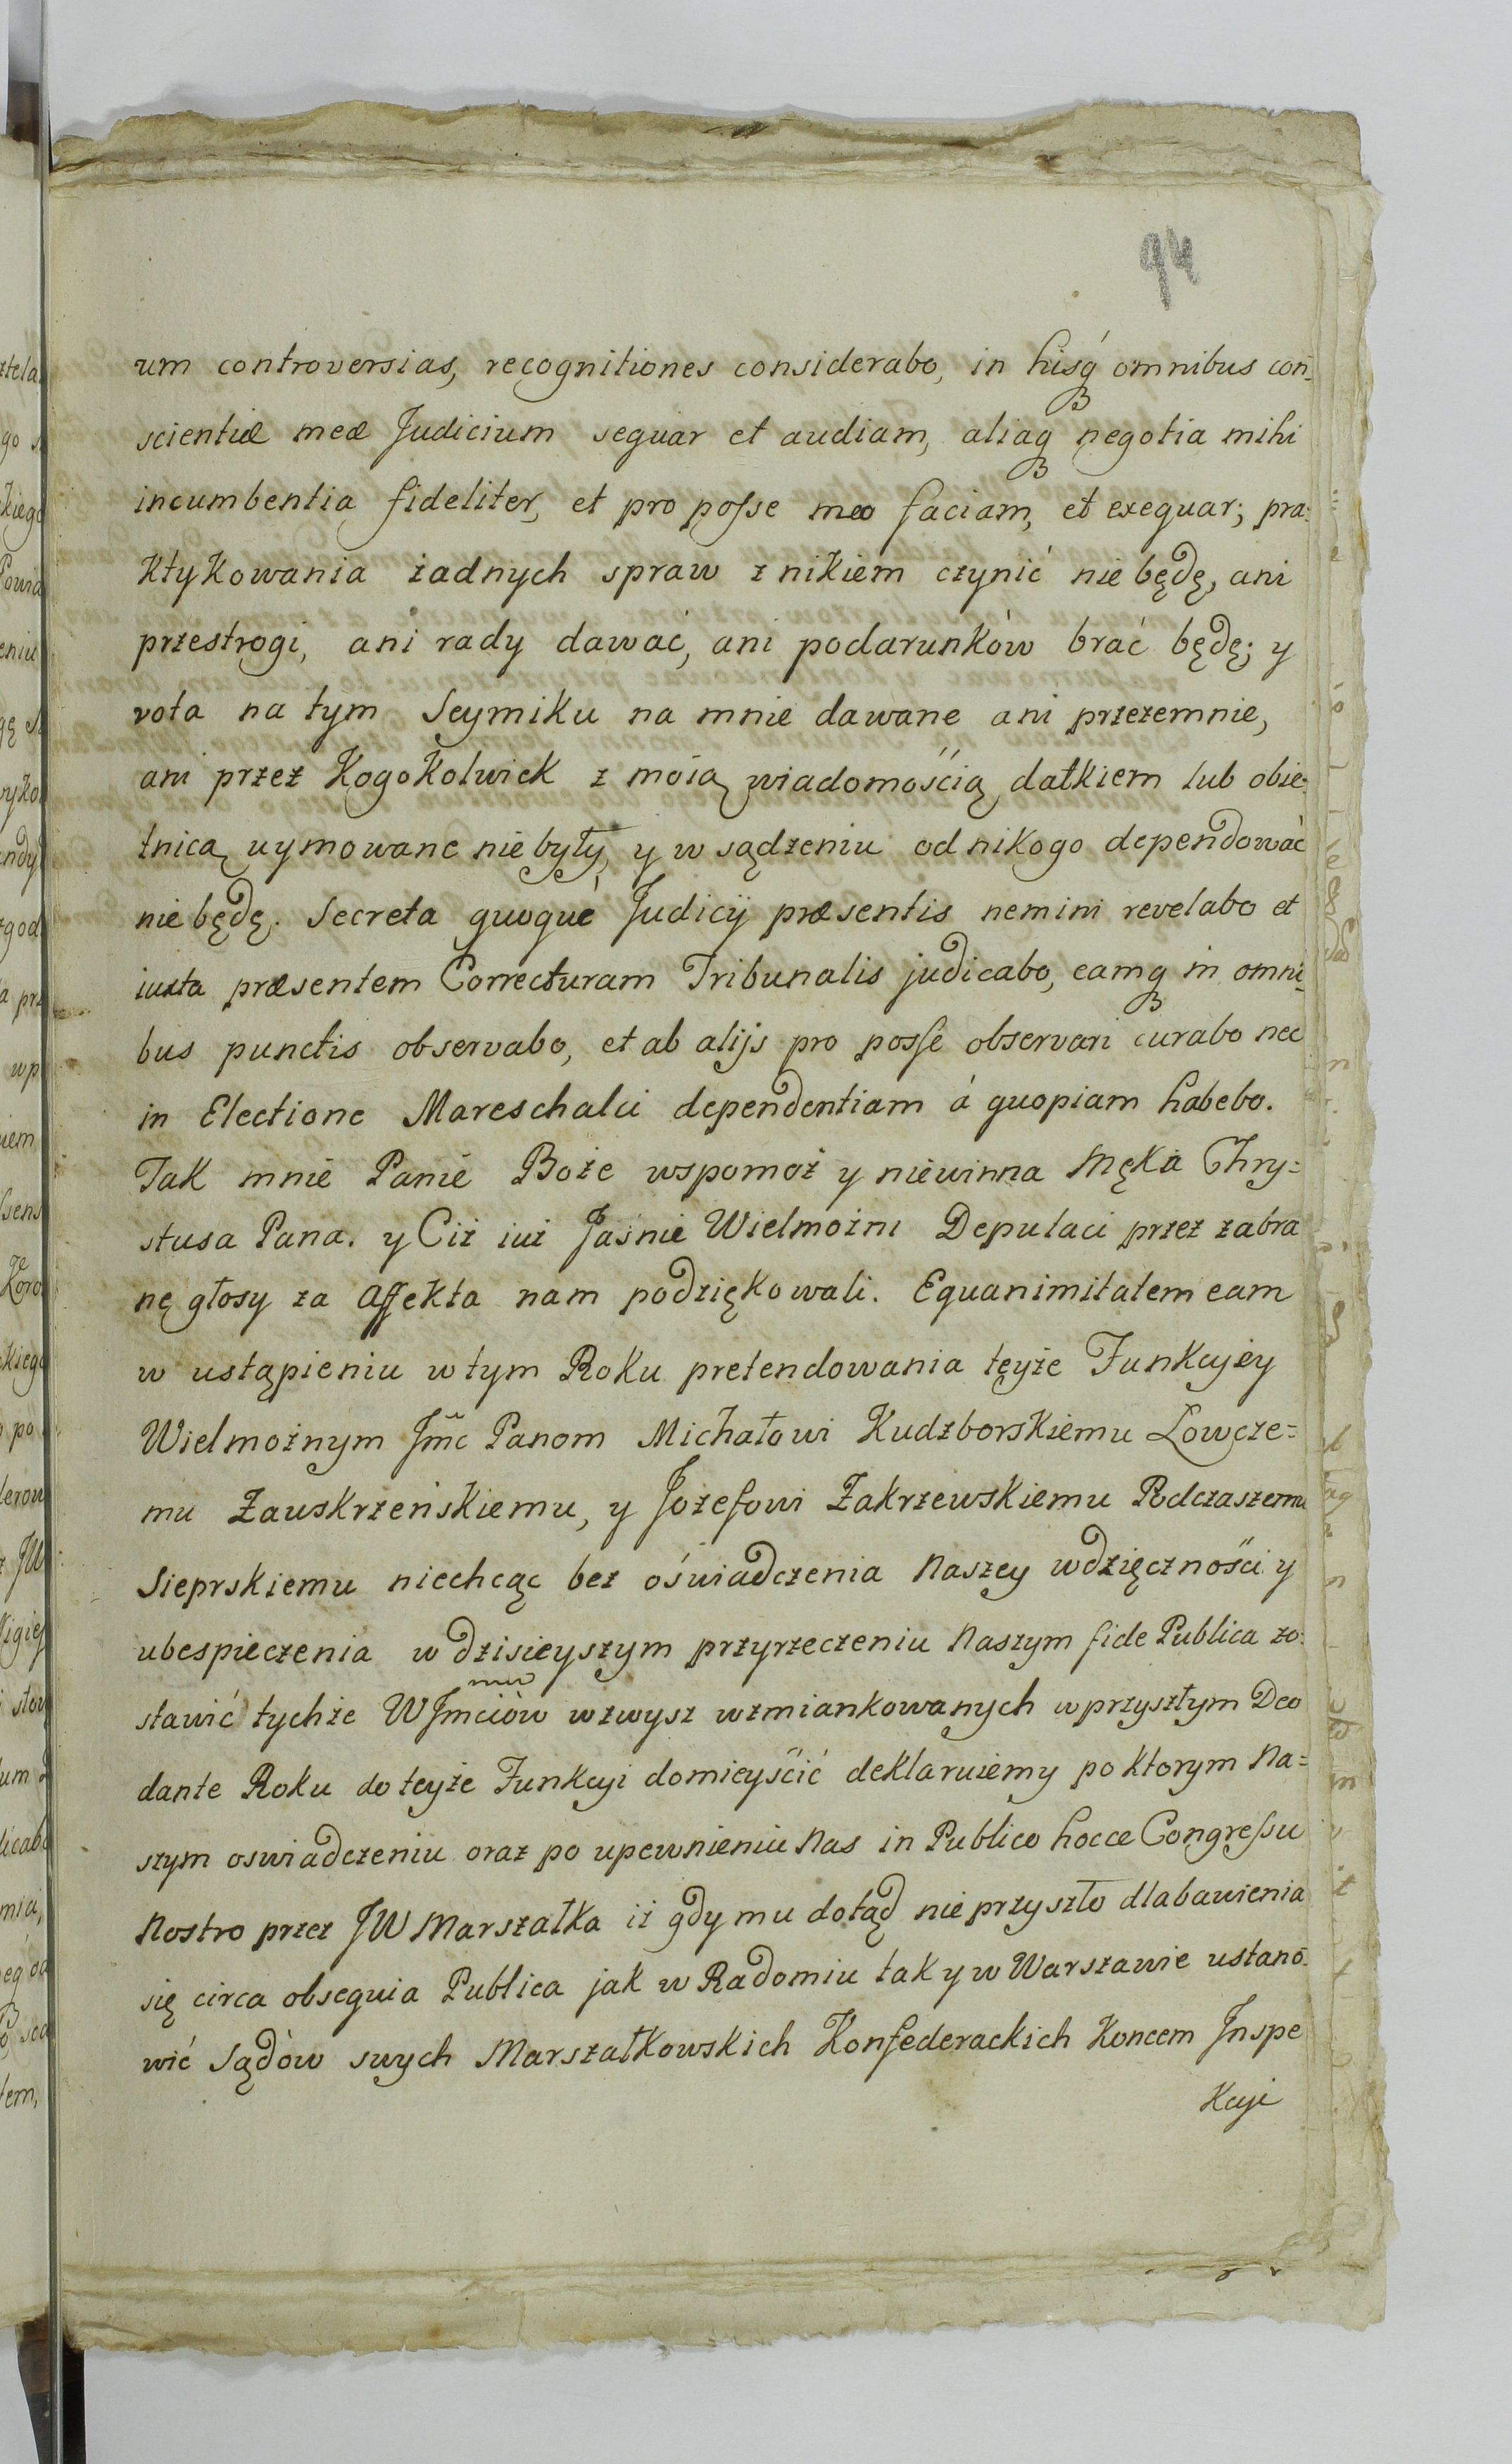 94
um controversias, recognitiones considerabo, in hisq́ omnibus con-
scientiæ meæ Judicium sequar et audiam, aliaq negotia mihi
incumbentia fideliter, et pro posse meo faciam, et exequar; pra-
ktykowania żadnych spraw z nikiem czynić nie będę, ani
przestrogi, ani rady dawać, ani podarunków brać będę; y
vota na tym Seymiku na mnie dawane ani przezemnie,
ani przez kogokolwiek z moią wiadomością datkiem lub obie-
tnicą uymowane nie były, y w sądzeniu od nikogo dependować
nie będę. Secreta quoque Judicij præsentis nemini revelabo et
iuxta præsentem Correcturam Tribunalis judicabo, eamq in omni-
bus punctis observabo, et ab alijs pro posse observari curabo nec
in Electione Mareschalci dependentiam á quopiam habebo.
Tak mnie Panie Boże wspomoż y niewinna Męka Chry=
stusa Pana. y Ciż iuż Jaśnie Wielmożni Deputaci przez zabra
nę głosy za Affekta nam podziękowali. Equanimitatem eam
w ustąpieniu w tym Roku pretendowania teyże Funkcyiey
Wielmożnym Jmc Panom Michałowi Kudzborskiemu Łowcze=
mu Zawskrzeńskiemu, y Jozefowi Zakrzewskiemu Podczaszemu
Sieprskiemu niechcąc bez oświadczenia Naszey wdzięczności y
ubespieczenia w dzisieyszym przyrzeczeniu Naszym fide Publica zo-
stawić tychże WJmciòw wzwysz wzmiankowanych w przyszłym Deo
dante Roku do teyże Funkcyi domieyścić deklaruiemy po ktorym Na=
szym oswiadczeniu oraz po upewnieniu Nas in Publico hocce Congressu
Nostro przez JW Marszałka iż gdy mu dotąd nie przyszło dla bawienia
się circa obsequia Publica jak w Radomiu tak y w Warszawie ustano-
wić Sądòw swych Marszałkowskich Konfederackich koncem Inspe
kcyi